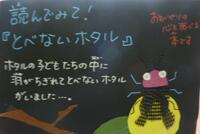 読んでみて！
『とべないホタル』
ホタルの子どもたちの中に
羽がちぢれてとべないホタル
がいました…。
おもいやりの
心を感じる
本です